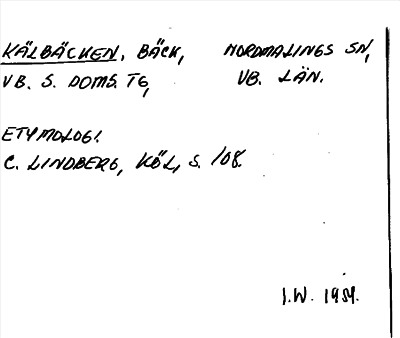 KÄLBÄCKEN, BÄCK, NORDMALINGS SN,
VB. S. DOMS. TG, VB. LÄN.
ETYMOLOGI.
C. LINDBERG, KÖL, S. 108.
I.W. 1984.